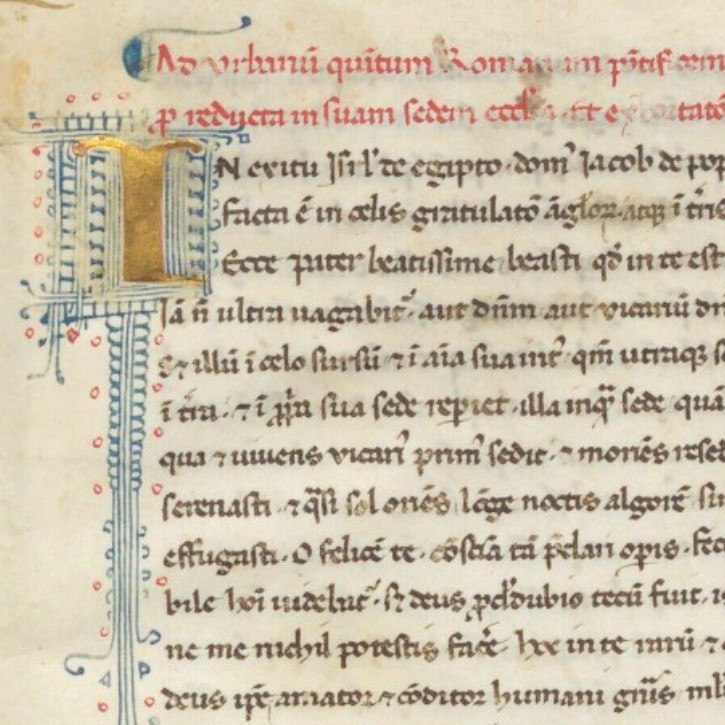 Ad vrbanū quītum Romanum pōtificem
p reducta in suam sedem
IN exitu Isrl' de egipto dom' Iacob de pop
facta ē in celis gratulatō āglor. atq ī tris
Ecce pater beatissime beasti qd in te est
Iā ñ ultra uagabit' aut dnm aut vicariū dn
⁊ illū ī celo sursū ⁊ ī aīa sua int' qm utraq s
ī tra . ⁊ ī ppa sua sede repiet . illa inq sede quā
qua ⁊ uiuens vicari' prim' sedit . ⁊ moriēs resed
serenasti . ⁊ q̄si sol oriēs lōge noctis algorē su
effugasti . O felicē te . cōsciā tā pclari opis . fec
bile hoī uidebat' . s; deus pcldubio tecū fuit .
ne me nichil potestis facē hec in te
deus ipe amator ⁊ cōditor humani gnis ml